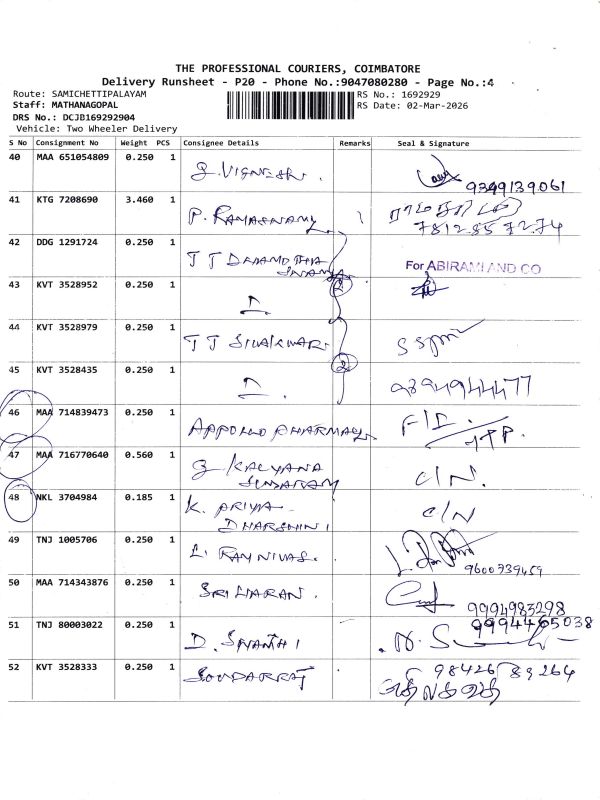 THE PROFESSIONAL COURIERS, COIMBATORE
Delivery Runsheet - P20 - Phone No.:9047080280 - Page No.:4
Route: SAMICHETTIPALAYAM RS No.: 1692929
Staff: MATHANAGOPAL RS Date: 02-Mar-2026
DRS No.: DCJB169292904
Vehicle: Two Wheeler Delivery
S No Consignment No Weight PCS Consignee Details Remarks Seal & Signature
40 MAA 651054809 0.250 1
G. VIGNESH. 9399139061
41 KTG 7208690 3.460 1
P. RAMASWAMY ராமசாமி
7812857274
42 DDG 1291724 0.250 1
T T
For ABIRAMI AND CO
43 KVT 3528952 0.250 1 2
44 KVT 3528979 0.250 1
T T SIVAKUMAR
45 KVT 3528435 0.250 1 2
9894944477
46 MAA 714839473 0.250 1
APPOLLO PHARMACY
47 MAA 716770640 0.560 1
G KALYANA C/N.
SUNDARAM
48 NKL 3704984 0.185 1
K. PRIYA C/N
DHARSHINI
49 TNJ 1005706 0.250 1
L. RAMNIVAS. 9600739459
50 MAA 714343876 0.250 1
SRIHARAN. 9994983298
51 TNJ 80003022 0.250 1 9994465038
D. SHANTHI
52 KVT 3528333 0.250 1 98426 89264
SOUDARRAJ